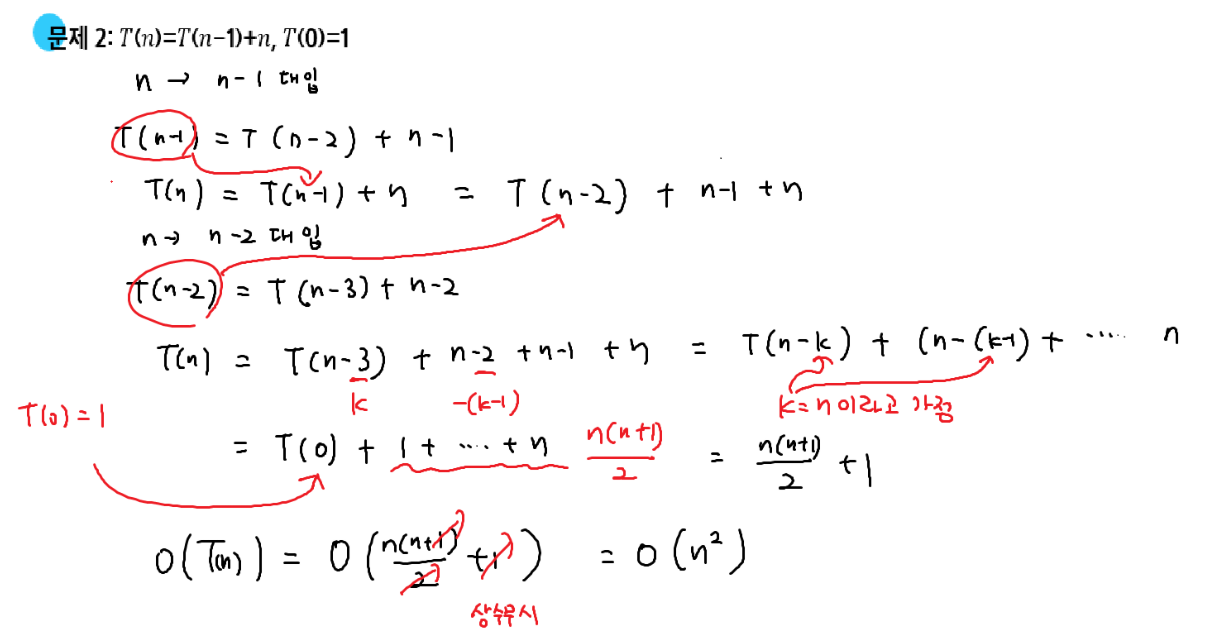 문제 2: T(n)=T(n−1)+n, T(0)=1
n → n-1 대입
T(n-1) = T(n-2) + n-1
T(n) = T(n-1) + n = T(n-2) + n-1 + n
n → n-2 대입
T(n-2) = T(n-3) + n-2
T(n) = T(n-3) + n-2 + n-1 + n = T(n-k) + (n-(k-1) + ..... n
k -(k-1) k=n이라고 가정
T(0)=1
= T(0) + 1 + .... + n n(n+1)/2 = n(n+1)/2 + 1
O(T(n)) = O(n(n+1)/2 + 1) = O(n²)
상수무시